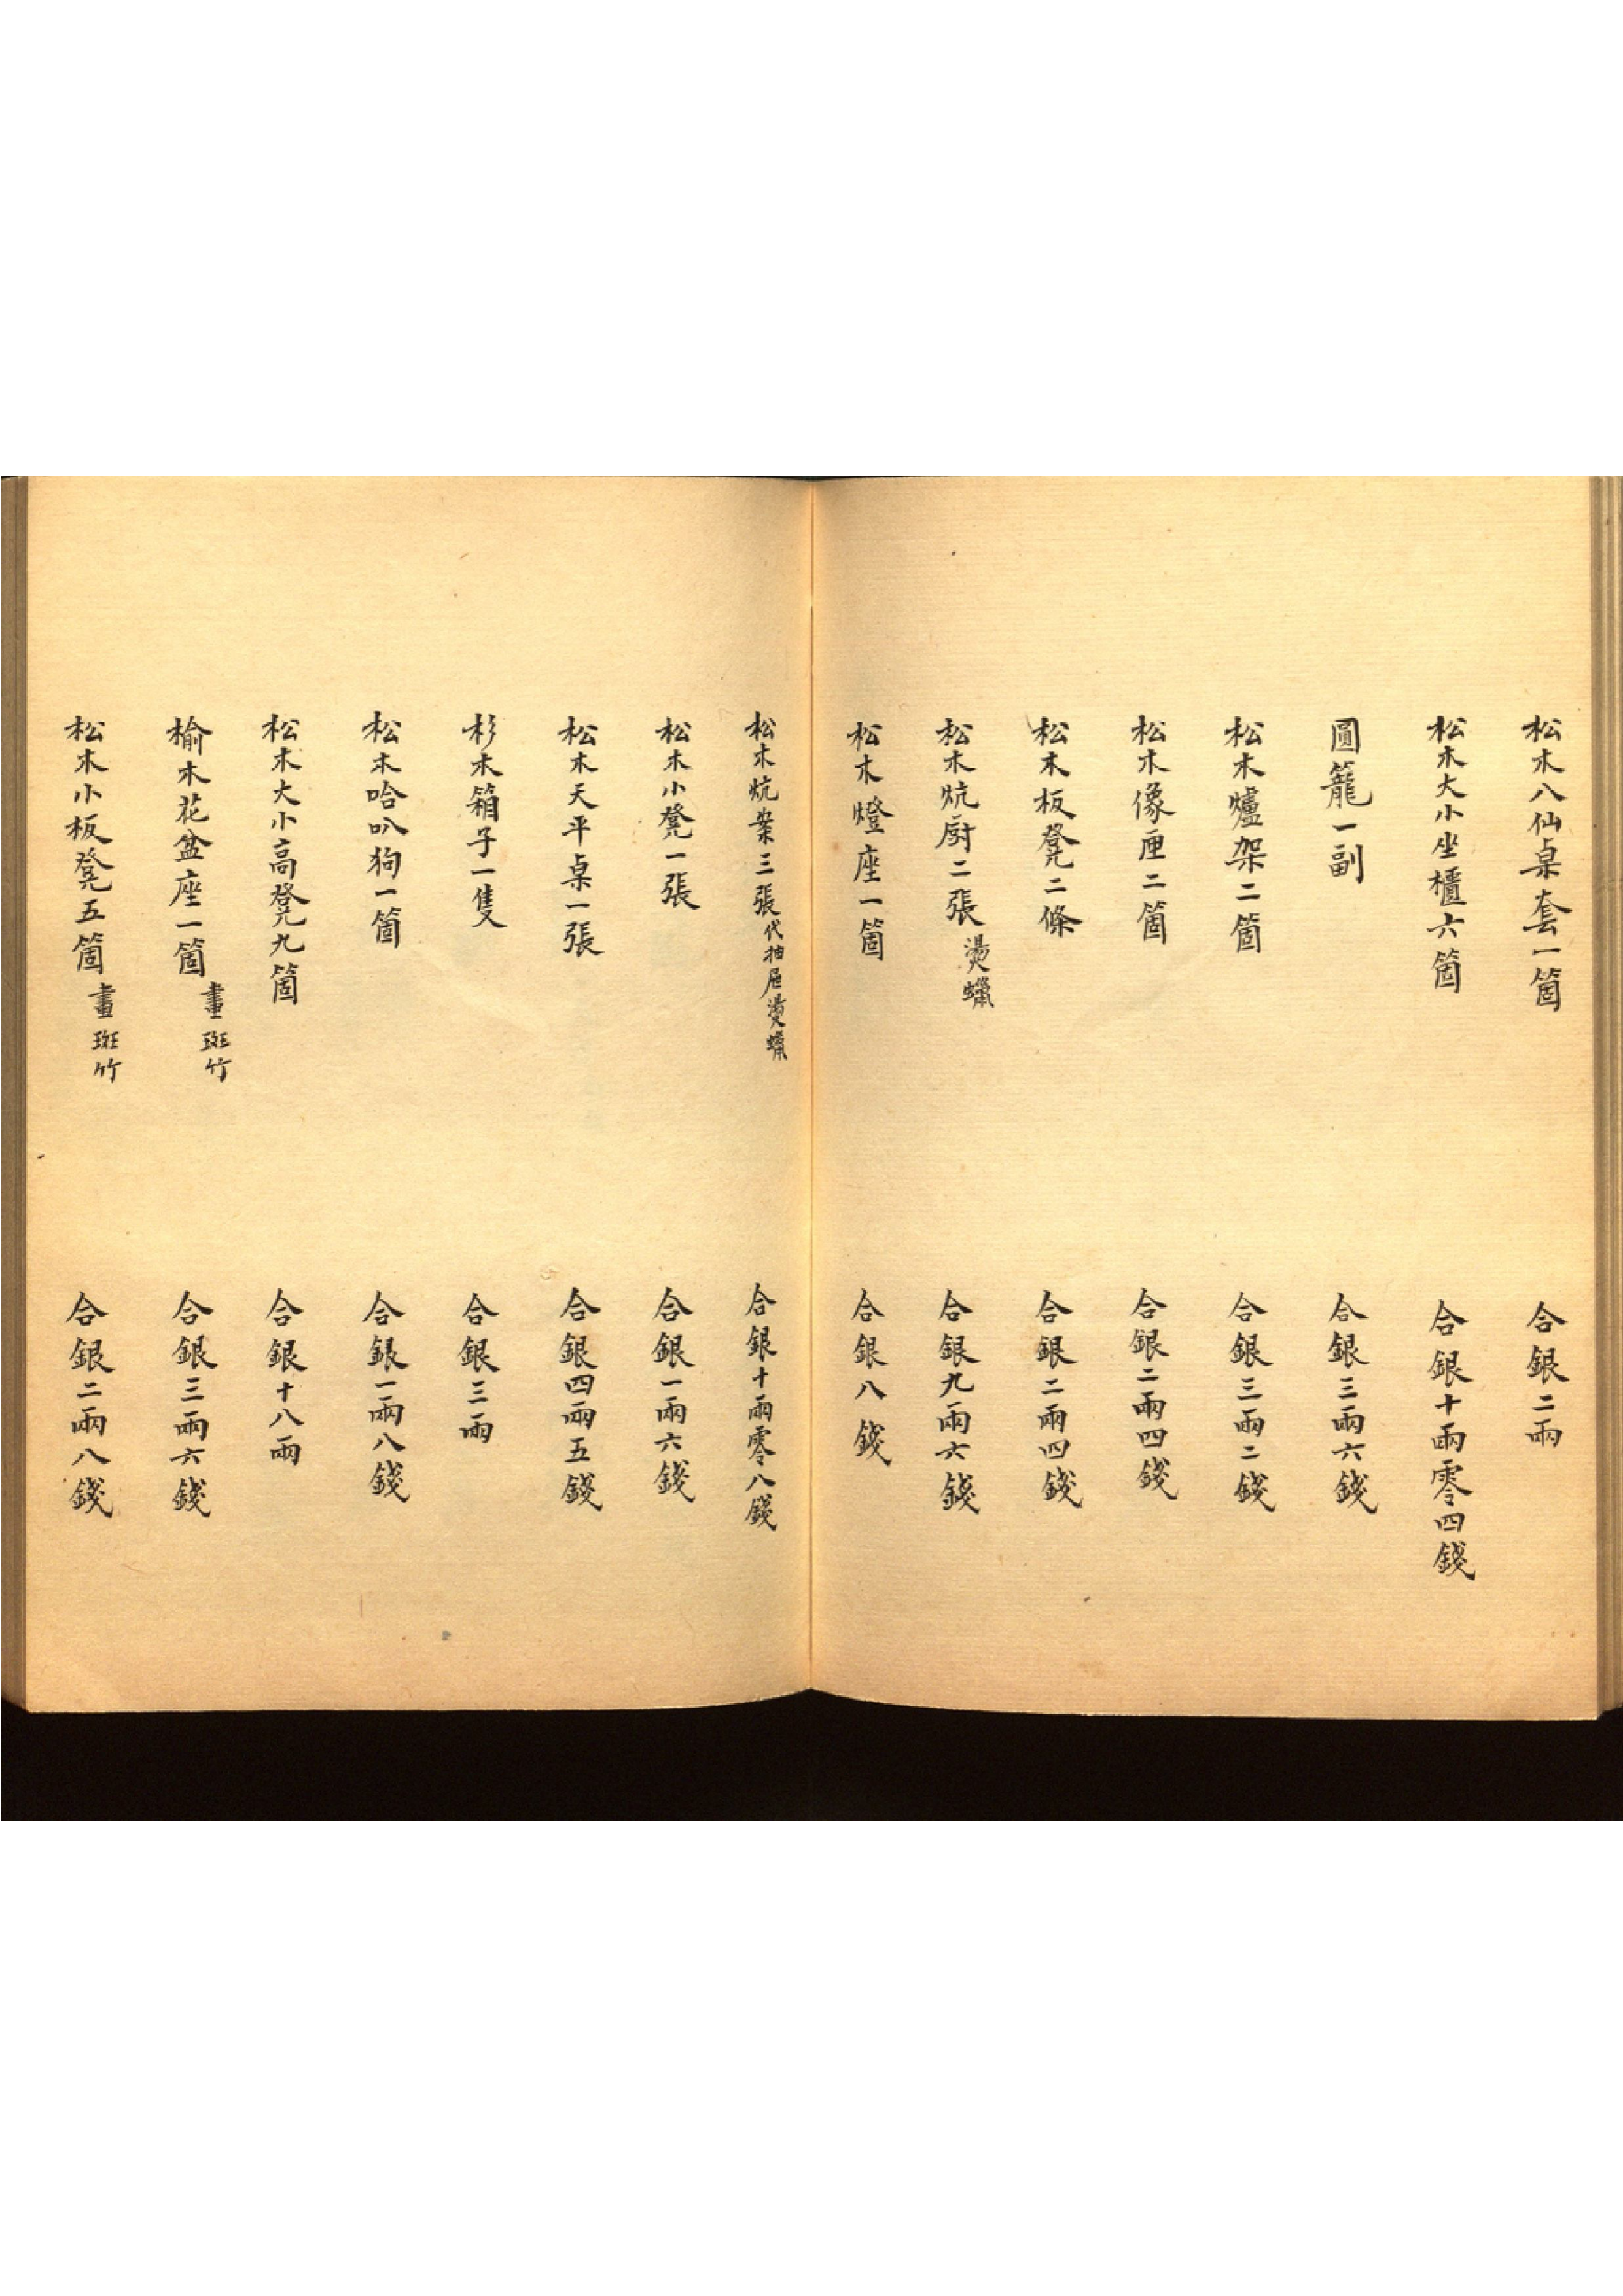 松木八仙桌套一箇 合銀二兩
松木大小坐櫃六箇 合銀十兩零四錢
圓籠一副 合銀三兩六錢
松木爐架二箇 合銀三兩二錢
松木像匣二箇 合銀二兩四錢
松木板凳二條 合銀二兩四錢
松木炕厨二張 燙蠟 合銀九兩六錢
松木燈座一箇 合銀八錢
松木炕案三張 代抽屉燙蠟 合銀十兩零八錢
松木小凳一張 合銀一兩六錢
松木天平桌一張 合銀四兩五錢
杉木箱子一隻 合銀三兩
松木哈叭狗一箇 合銀一兩八錢
松木大小高凳九箇 合銀十八兩
榆木花盆座一箇 畫斑竹 合銀三兩六錢
松木小板凳五箇 畫斑竹 合銀二兩八錢